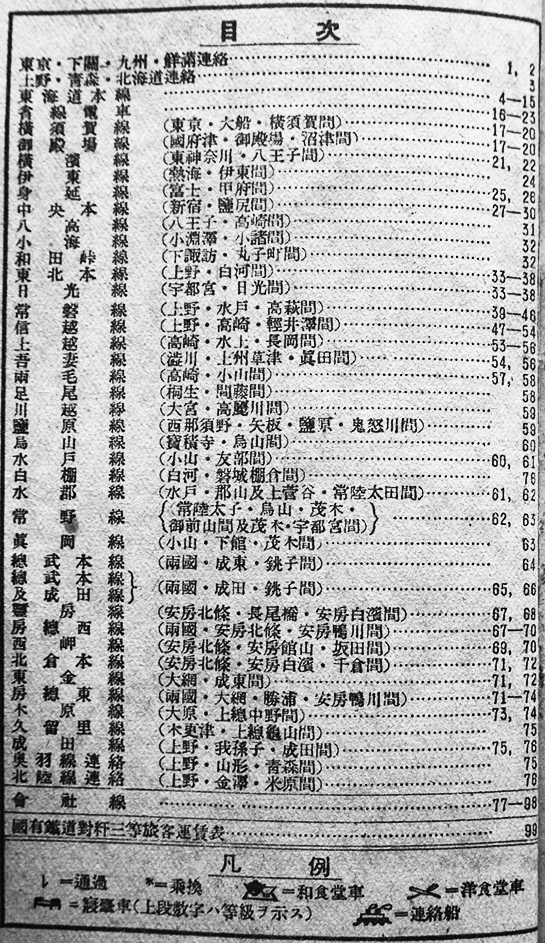 目次
東京・下關・九州・鮮滿連絡 1, 2
上野・青森・北海道連絡 3
東海道本線 4—15
省線電車 16—23
橫須賀線 (東京・大船・橫須賀間) 17—20
御殿場線 (國府津・御殿場・沼津間) 17—20
橫濱線 (東神奈川・八王子間) 21, 22
伊東線 (熱海・伊東間) 24
身延線 (富士・甲府間) 25, 26
中央本線 (新宿・鹽尻間) 27—30
八高線 (八王子・高崎間) 31
小海線 (小淵澤・小諸間) 32
和田峠線 (下諏訪・丸子町間) 32
東北本線 (上野・白河間) 33—38
日光線 (宇都宮・日光間) 33—38
常磐線 (上野・水戸・高萩間) 39—46
信越線 (上野・高崎・輕井澤間) 47—54
上越線 (高崎・水上・長岡間) 53—56
吾妻線 (澁川・上州草津・眞田間) 54, 56
兩毛線 (高崎・小山間) 57, 58
足尾線 (桐生・間藤間) 58
川越線 (大宮・高麗川間) 59
鹽原線 (西那須野・矢板・鹽原・鬼怒川間) 59
烏山線 (寶積寺・烏山間) 60
水戸線 (小山・友部間) 60, 61
白棚線 (白河・磐城棚倉間) 76
水郡線 (水戸・郡山及上菅谷・常陸太田間) 61, 62
常野線 {(常陸太子・烏山・茂木・
御前山間及茂木・宇都宮間)} 62, 63
眞岡線 (小山・下館・茂木間) 63
總武本線 (兩國・成東・銚子間) 64
總武本線
及成田線} (兩國・成田・銚子間) 65, 66
房線 (安房北條・長尾橋・安房白濱間) 67, 68
房總西線 (兩國・安房北條・安房鴨川間) 67—70
西岬線 (安房北條・安房館山・坂田間) 69, 70
北倉本線 (安房北條・安房白濱・千倉間) 71, 72
東金線 (大網・成東間) 71, 72
房總東線 (兩國・大網・勝浦・安房鴨川間) 71—74
木原線 (大原・上總中野間) 73, 74
久留里線 (木更津・上總龜山間) 75
成田線 (上野・我孫子・成田間) 75, 76
奥羽線連絡 (上野・山形・青森間) 75
北陸線連絡 (上野・金澤・米原間) 76
會社線 77—98
國有鐵道對粁三等旅客運賃表 99
凡例
レ=通過 *=乘換 =和食堂車 =洋食堂車
=寢臺車(上段数字ハ等級ヲ示ス) =連絡船